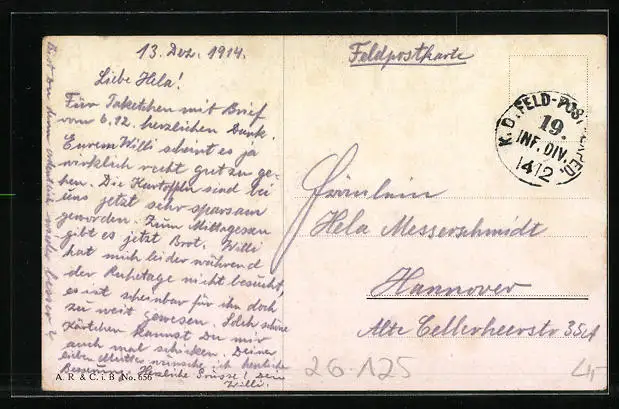 13. Dez. 1914.
Liebe Hela!
Für Paketchen mit Brief
vom 6.12. herzlichen Dank.
Eurem Willi scheint es ja
wirklich recht gut zu ge-
hen. Die Kartoffeln sind bei
uns jetzt sehr sparsam
geworden. Zum Mittagessen
gibt es jetzt Brot. Willi
hat mich leider während
der Ruhetage nicht besucht,
es ist scheinbar für ihn doch
zu weit gewesen. Solch schöne
Kärtchen kannst Du mir
auch mal schicken. Deiner
lieben Mutter wünsche ich herzliche
Besserung. Herzliche Grüsse! Dein
Willi!
Bist Du denn wieder besser?
A. R. & C. i. B. No. 656
Feldpostkarte
K. D. FELD-POSTEXPED.
19.
INF. DIV.
14 12
Fräulein
Hela Messerschmidt
Hannover
Alte Cellerheerstr 35A
26.125